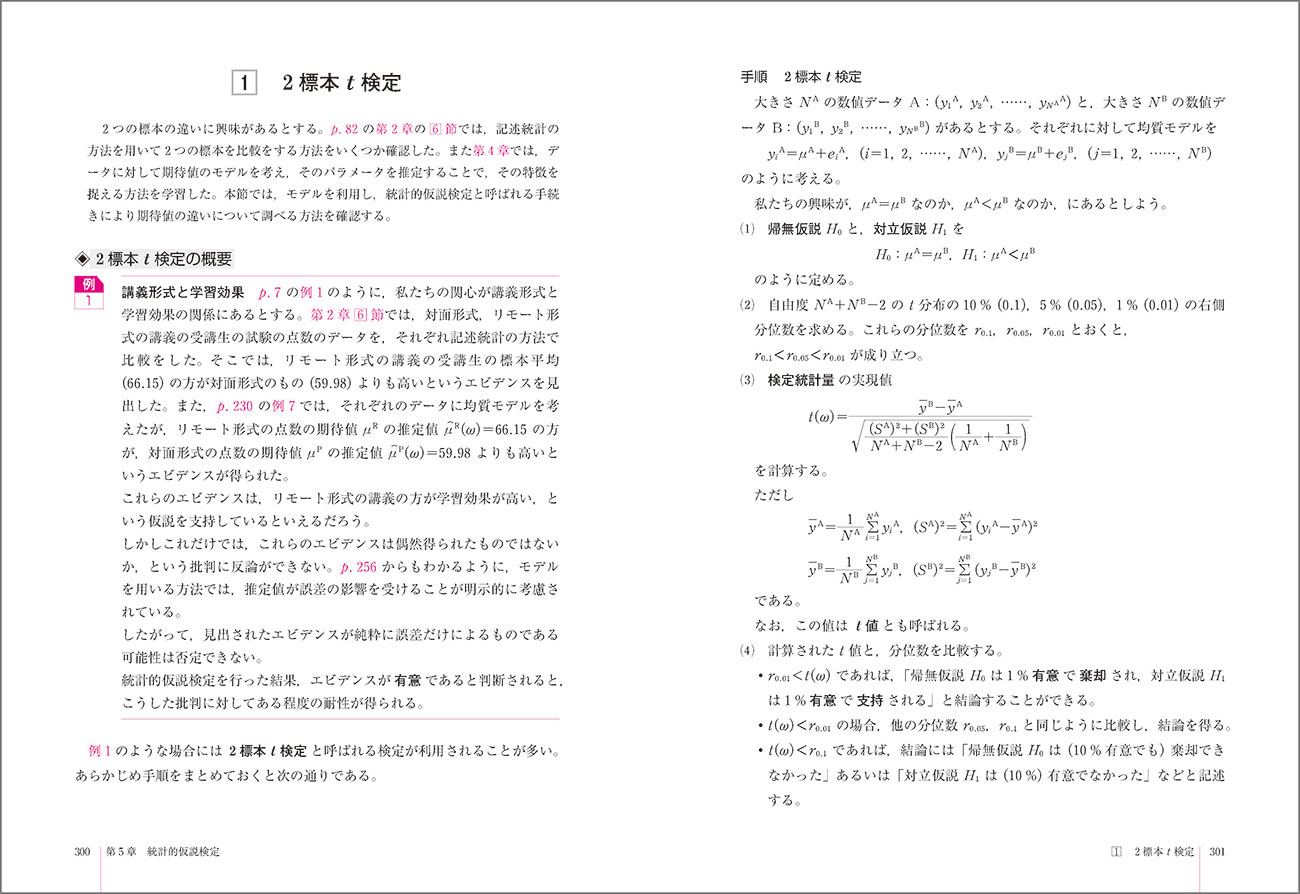 1 2標本 t 検定
2つの標本の違いに興味があるとする。p.82 の第2章の 6 節では，記述統計の
方法を用いて2つの標本を比較をする方法をいくつか確認した。また第4章では，デ
ータに対して期待値のモデルを考え，そのパラメータを推定することで，その特徴を
捉える方法を学習した。本節では，モデルを利用し，統計的仮説検定と呼ばれる手続
きにより期待値の違いについて調べる方法を確認する。
◈ 2標本 t 検定の概要
例
1
講義形式と学習効果 p.7 の例1のように，私たちの関心が講義形式と
学習効果の関係にあるとする。第2章 6 節では，対面形式，リモート形
式の講義の受講生の試験の点数のデータを，それぞれ記述統計の方法で
比較をした。そこでは，リモート形式の講義の受講生の標本平均
(66.15) の方が対面形式のもの (59.98) よりも高いというエビデンスを見
出した。また，p.230 の例7では，それぞれのデータに均質モデルを考
えたが，リモート形式の点数の期待値 μᴿ の推定値 μ̂ᴿ(ω)=66.15 の方
が，対面形式の点数の期待値 μᴾ の推定値 μ̂ᴾ(ω)=59.98 よりも高いと
いうエビデンスが得られた。
これらのエビデンスは，リモート形式の講義の方が学習効果が高い，と
いう仮説を支持しているといえるだろう。
しかしこれだけでは，これらのエビデンスは偶然得られたものではない
か，という批判に反論ができない。p.256 からもわかるように，モデル
を用いる方法では，推定値が誤差の影響を受けることが明示的に考慮さ
れている。
したがって，見出されたエビデンスが純粋に誤差だけによるものである
可能性は否定できない。
統計的仮説検定を行った結果，エビデンスが 有意 であると判断されると，
こうした批判に対してある程度の耐性が得られる。
例1のような場合には 2標本 t 検定 と呼ばれる検定が利用されることが多い。
あらかじめ手順をまとめておくと次の通りである。
300 第5章 統計的仮説検定
手順 2標本 t 検定
大きさ Nᴬ の数値データ A：(y₁ᴬ, y₂ᴬ, ……, y_{Nᴬ}ᴬ) と，大きさ Nᴮ の数値デ
ータ B：(y₁ᴮ, y₂ᴮ, ……, y_{Nᴮ}ᴮ) があるとする。それぞれに対して均質モデルを
yᵢᴬ=μᴬ+eᵢᴬ, (i=1, 2, ……, Nᴬ), yⱼᴮ=μᴮ+eⱼᴮ, (j=1, 2, ……, Nᴮ)
のように考える。
私たちの興味が，μᴬ=μᴮ なのか，μᴬ<μᴮ なのか，にあるとしよう。
(1) 帰無仮説 H₀ と，対立仮説 H₁ を
H₀：μᴬ=μᴮ, H₁：μᴬ<μᴮ
のように定める。
(2) 自由度 Nᴬ+Nᴮ−2 の t 分布の 10 % (0.1)，5 % (0.05)，1 % (0.01) の右側
分位数を求める。これらの分位数を r₀.₁，r₀.₀₅，r₀.₀₁ とおくと，
r₀.₁<r₀.₀₅<r₀.₀₁ が成り立つ。
(3) 検定統計量 の実現値
t(ω)=(ȳᴮ−ȳᴬ)/√((Sᴬ)²+(Sᴮ)²/(Nᴬ+Nᴮ−2) (1/Nᴬ+1/Nᴮ))
を計算する。
ただし
ȳᴬ=1/Nᴬ Σ_{i=1}^{Nᴬ} yᵢᴬ, (Sᴬ)²=Σ_{i=1}^{Nᴬ} (yᵢᴬ−ȳᴬ)²
ȳᴮ=1/Nᴮ Σ_{j=1}^{Nᴮ} yⱼᴮ, (Sᴮ)²=Σ_{j=1}^{Nᴮ} (yⱼᴮ−ȳᴮ)²
である。
なお，この値は t 値 とも呼ばれる。
(4) 計算された t 値と，分位数を比較する。
・r₀.₀₁<t(ω) であれば，「帰無仮説 H₀ は 1 % 有意 で 棄却 され，対立仮説 H₁
は 1 % 有意 で 支持 される」と結論することができる。
・t(ω)<r₀.₀₁ の場合，他の分位数 r₀.₀₅，r₀.₁ と同じように比較し，結論を得る。
・t(ω)<r₀.₁ であれば，結論には「帰無仮説 H₀ は (10 % 有意でも) 棄却でき
なかった」あるいは「対立仮説 H₁ は (10 %) 有意でなかった」などと記述
する。
1 2標本 t 検定 301